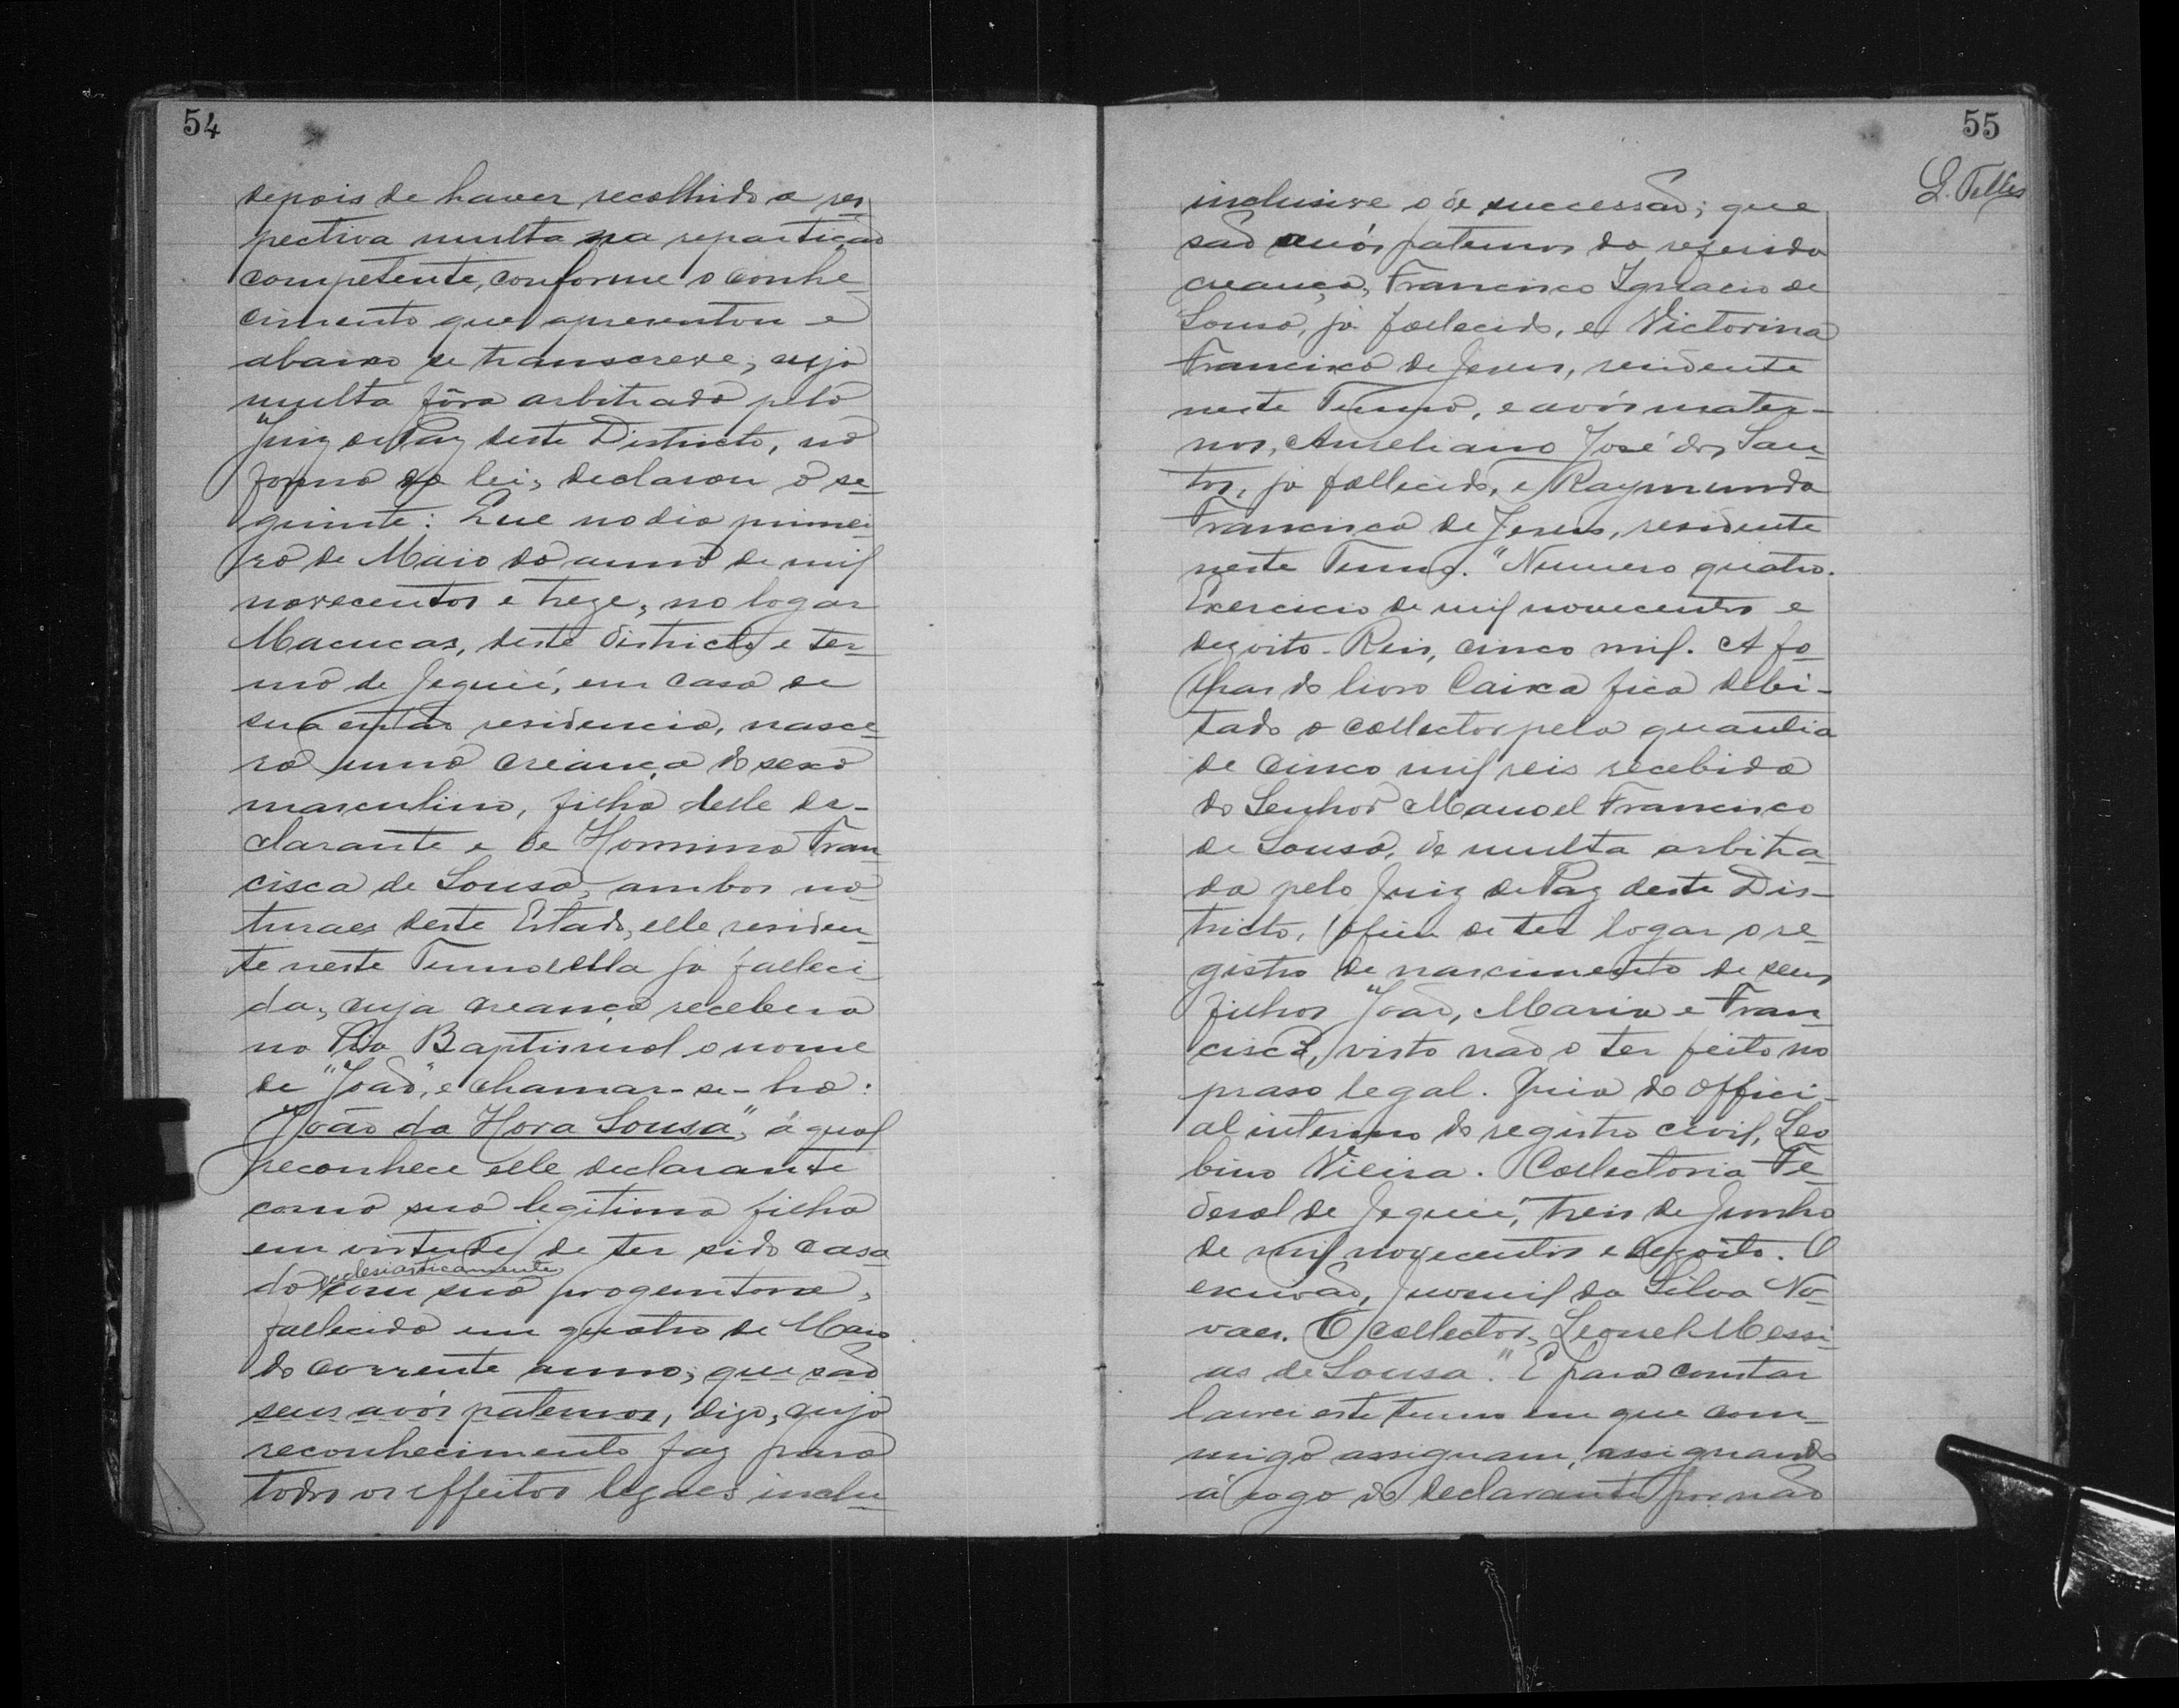 54
depois de haver recolhido a res
pectiva multa na repartição
competente, conforme o conhe
cimento que apresentou e
abaixo se transcreve, cuja
multa fôra arbitrada pelo
Juiz de Paz deste Districto, na
forma da lei, declarou o se-
guinte: Que no dia primei
ro de Maio do anno de mil
novecentos e treze, no logar
Macucas, deste districto e ter-
mo de Jequié, em casa de
sua então residencia, nasce-
ra uma creança do sexo
masculino, filha delle de-
clarante e de Hormina Fran
cisca de Sousa, ambos na
turaes deste Estado, elle residen-
te neste Termo e ella ja falleci-
da, cuja creança recebera
na Pia Baptismal o nome
de "João", e chamar-se-ha:
"João da Hora Sousa", á qual
reconhece elle declarante
como sua legitima filha
em virtude de ter sido casa
do ecclesiasticamente com sua progenitora,
fallecida em quatro de Maio
do corrente anno; que são
seus avós paternos, digo, cujo
reconhecimento faz para
todos os effeitos legaes inclu-
55
L. Telles
inclusive o de successão; que
são avós paternos da referida
creança, Francisco Ignacio de
Sousa, já fallecido, e Victorina
Francisca de Jesus, residente
neste Termo, e avós mater-
nos, Aureliano José dos San-
tos, ja fallecido, e Raymunda
Francisca de Jesus, residente
neste Termo. "Numero quatro.
Exercicio de mil novecentos e
dezoito. Reis, cinco mil. A fo-
lhas do livro Caixa fica debi-
tado o collector pela quantia
de cinco mil reis recebida
do Senhor Manoel Francisco
de Sousa, de multa arbitra-
da pelo Juiz de Paz deste Dis-
tricto, afim de ter logar o re-
gistro de nascimento de seus
filhos João, Maria e Fran-
cisca, visto não o ter feito no
praso legal. Guia do offici-
al interino do registro civil, Leo
bino Vieira. Collectoria Fe-
deral de Jequié, treis de Junho
de mil novecentos e dezoito. O
escrivão, Juvenil da Silva No-
vaes. O collector, Leonel Messi-
as de Sousa." E para constar
lavrei este termo em que com-
migo assignam, assignando
a rogo do declarante por não